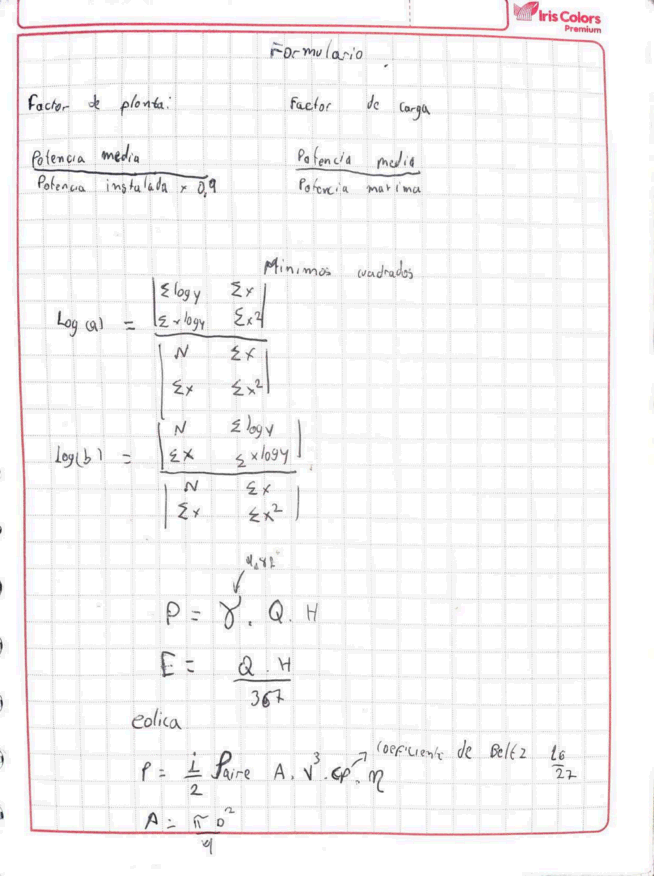 Iris Colors
Premium
Formulario.
Factor de planta: Factor de carga
Potencia media / Potencia instalada × 0,9
Potencia media / Potencia maxima
Minimos cuadrados
Log(a) = |Σlogy Σx|
|Σxlogy Σx²|
|N Σx|
|Σx Σx²|
Log(b) = |N Σlogy|
|Σx Σxlogy|
|N Σx|
|Σx Σx²|
P = γ. Q. H
E = Q. H / 367
eolica
P = 1/2 ρaire A. V³. cp. η → Coeficiente de Beltz 16/27
A = π D² / 4